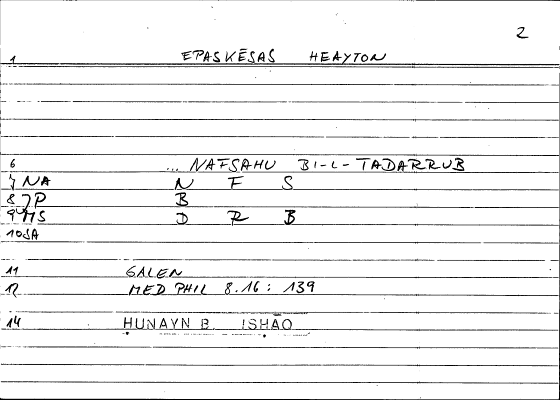 2
1 EPASKĒSAS HEAYTON
6 ... NAFSAHU BI-L-TADARRUB
7 NA N F S
8 JP B
9 MS D R B
10 SA
11 GALEN
12 MED PHIL 8.16 : 139
14 HUNAYN B. ISḤĀQ